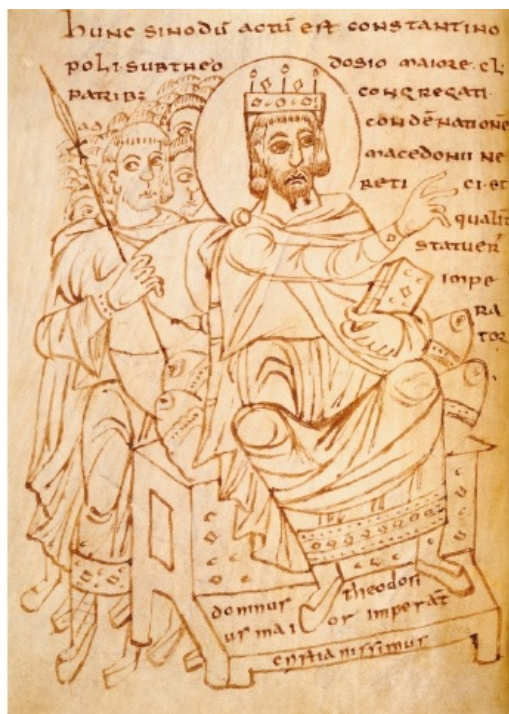 hunc sinodū actū est constantino
poli · sub theo dosio maiore · cl
patrib; congregati ·
condēnationē
macedonii ne
reti ci · et
qualit̄
statuer̄
impe
ra
tor
domnus theodosi
us mai or imperat̄
cristianissimus